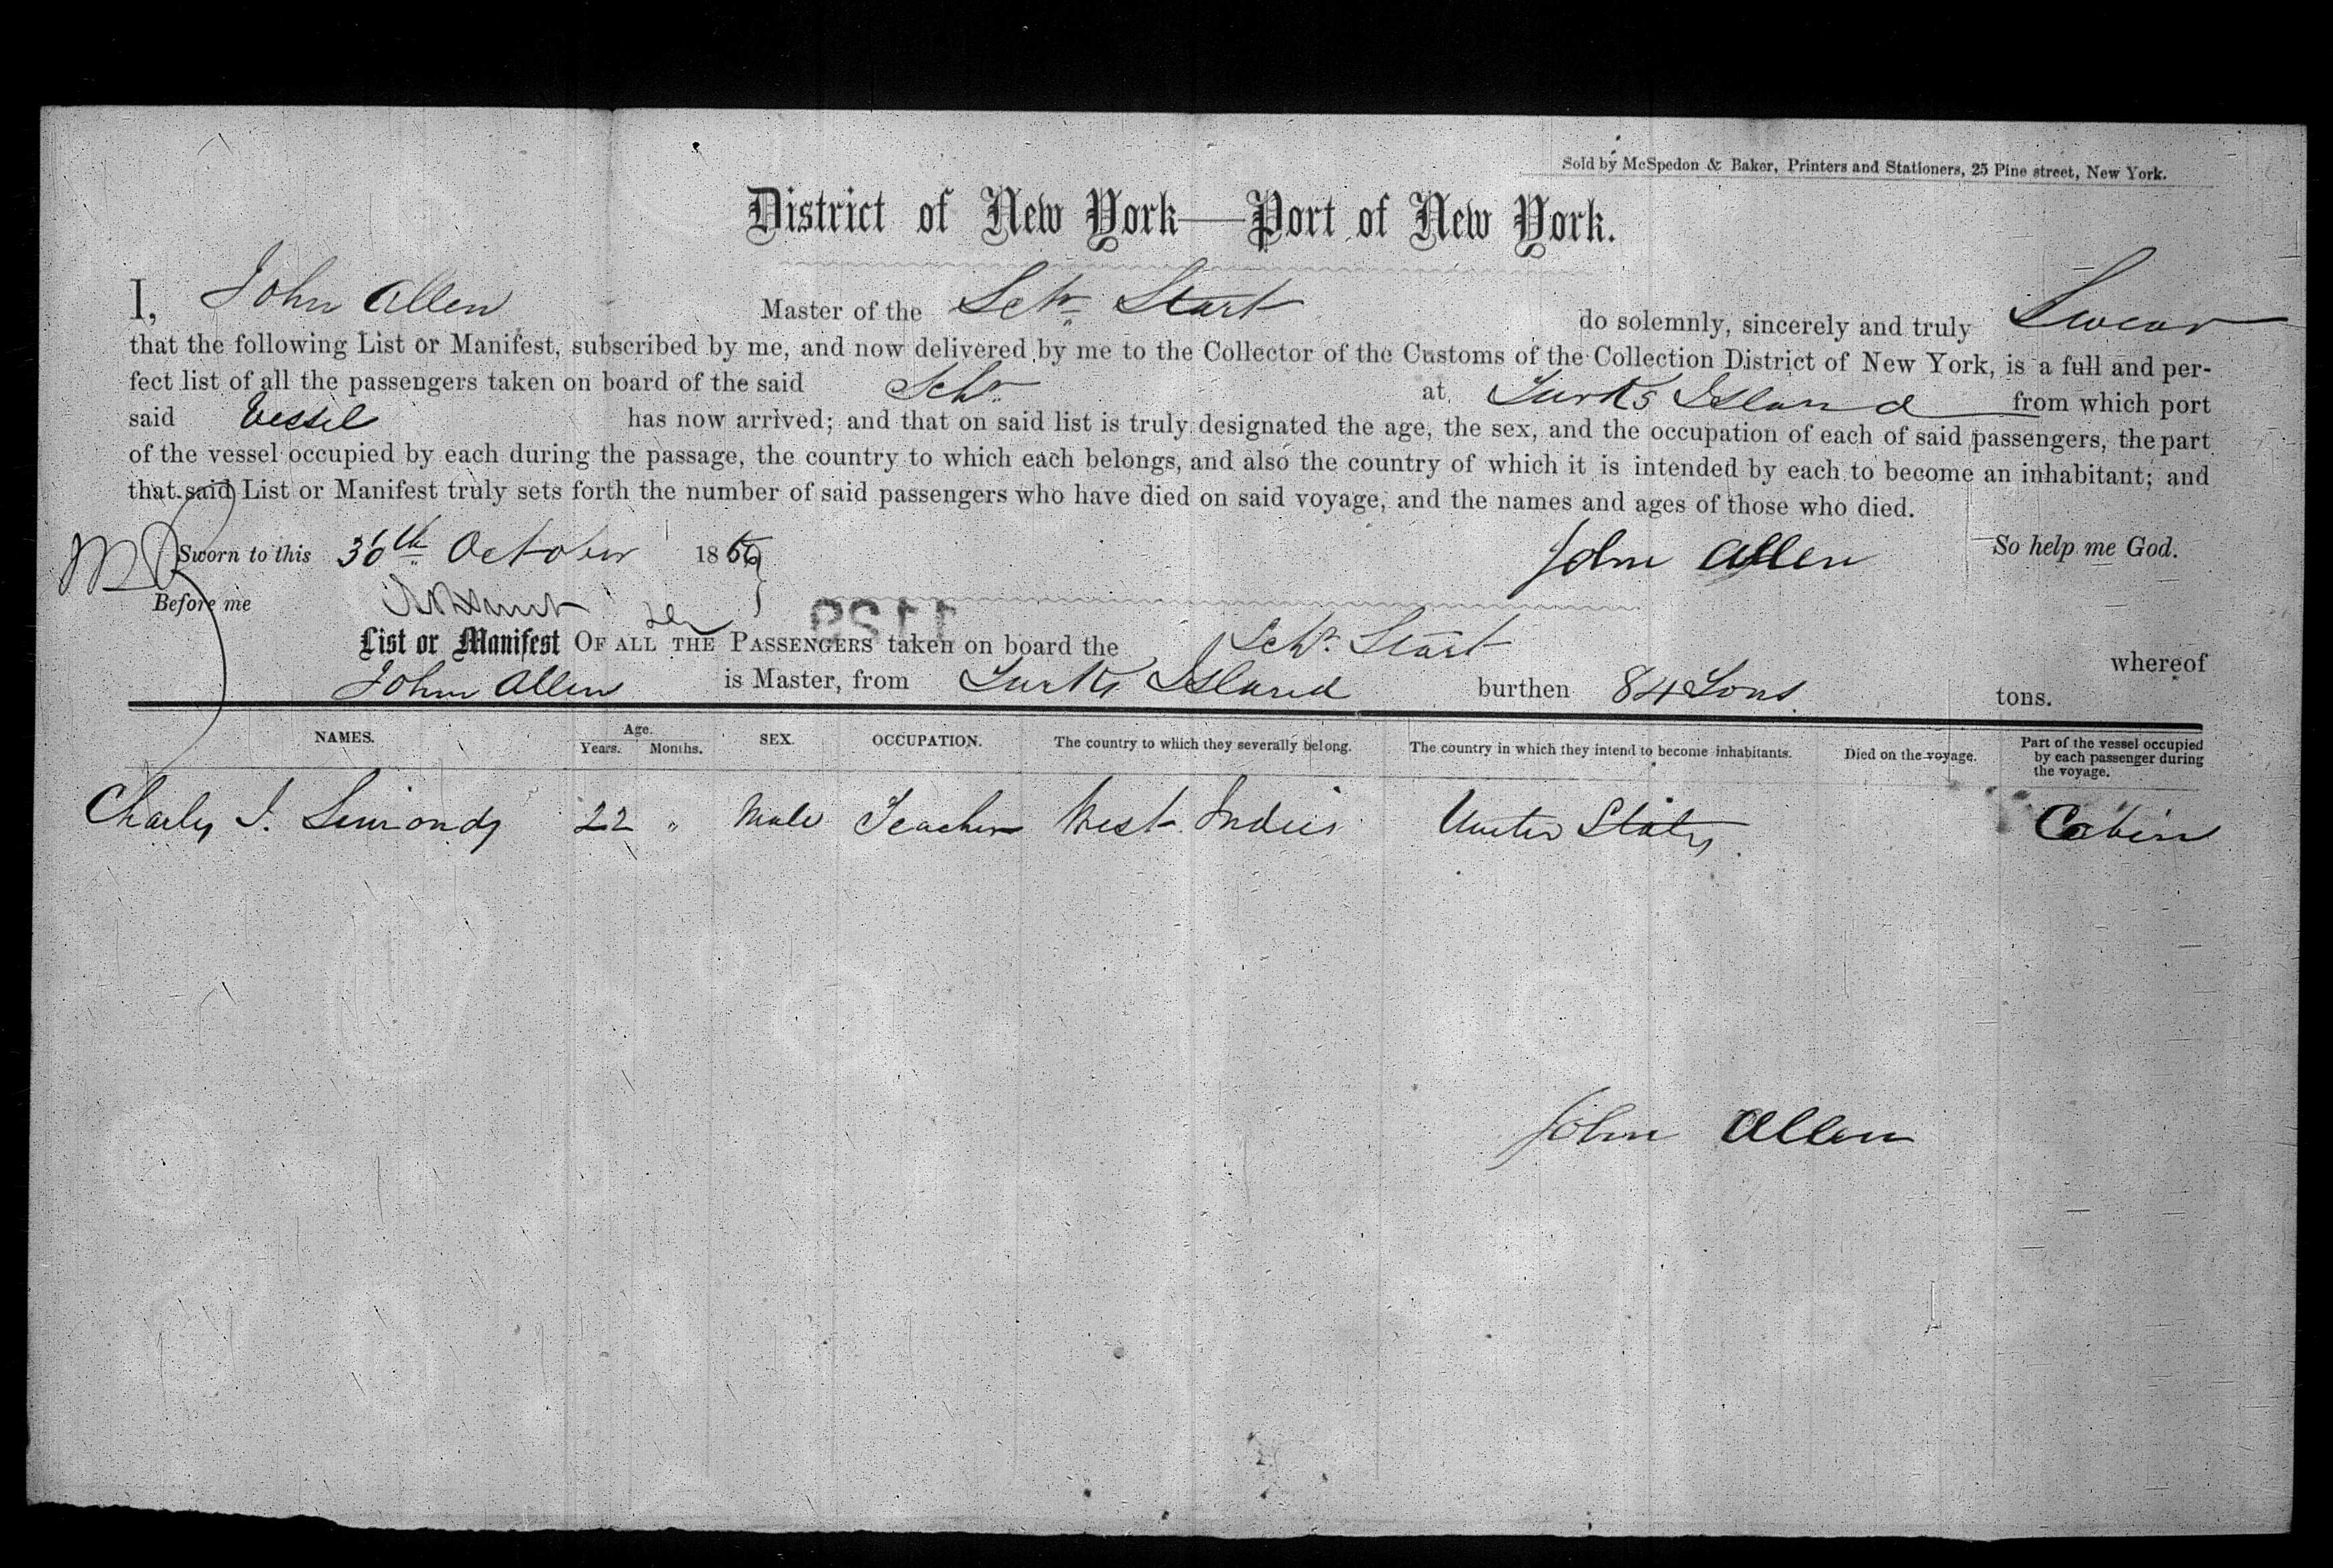 Sold by McSpedon & Baker, Printers and Stationers, 25 Pine street, New York.
District of New York—Port of New York.
I, John Allen Master of the Schr Start do solemnly, sincerely and truly Swear
that the following List or Manifest, subscribed by me, and now delivered by me to the Collector of the Customs of the Collection District of New York, is a full and per-
fect list of all the passengers taken on board of the said Schr at Turks Island from which port
said Vessel has now arrived; and that on said list is truly designated the age, the sex, and the occupation of each of said passengers, the part
of the vessel occupied by each during the passage, the country to which each belongs, and also the country of which it is intended by each to become an inhabitant; and
that said List or Manifest truly sets forth the number of said passengers who have died on said voyage, and the names and ages of those who died.
Sworn to this 30th October 1866 John Allen So help me God.
Before me
List or Manifest OF ALL THE PASSENGERS taken on board the Schr. Start whereof
John Allen is Master, from Turks Island burthen 84 Tons. tons.
NAMES. Age. Years. Months. SEX. OCCUPATION. The country to which they severally belong. The country in which they intend to become inhabitants. Died on the voyage. Part of the vessel occupied by each passenger during the voyage.
Charles J. Simonds 22 " Male Teacher West Indies United States Cabin
John Allen